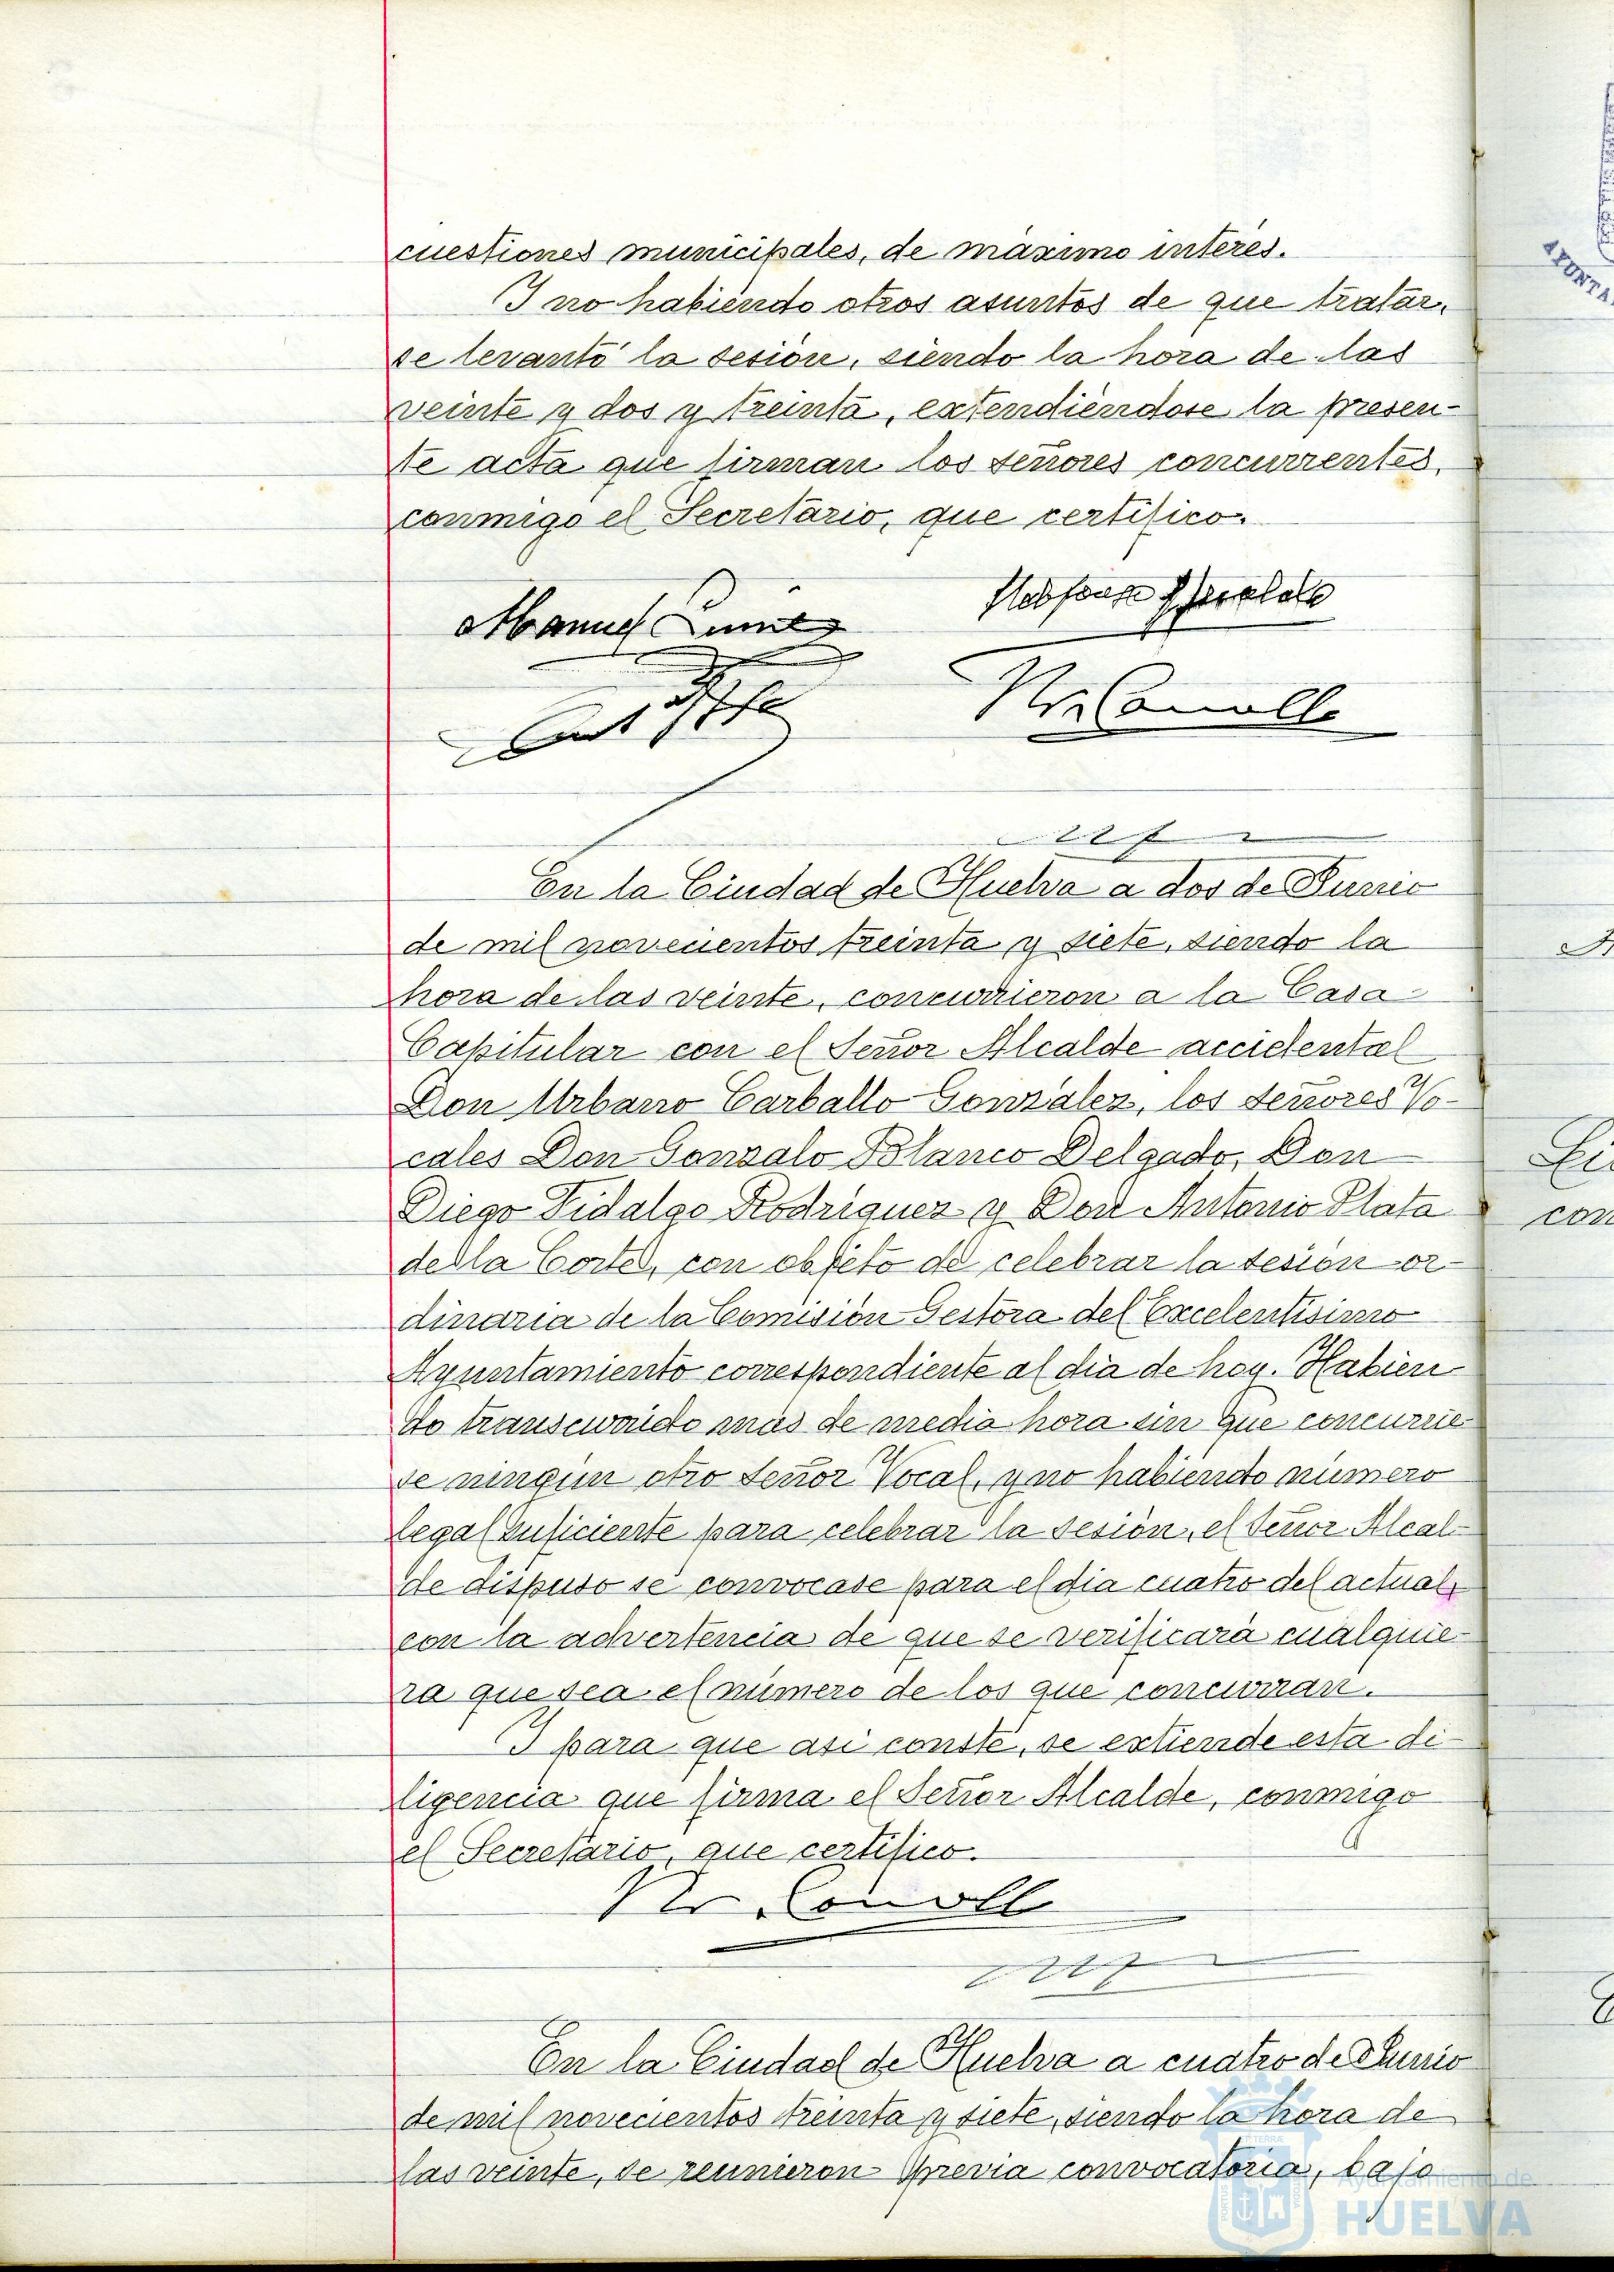 cuestiones municipales, de máximo interés.
Y no habiendo otros asuntos de que tratar,
se levantó la sesión, siendo la hora de las
veinte y dos y treinta, extendiéndose la presen-
te acta que firman los señores concurrentes,
conmigo el Secretario, que certifico.
Manuel
En la Ciudad de Huelva a dos de Junio
de mil novecientos treinta y siete, siendo la
hora de las veinte, concurrieron a la Casa
Capitular con el Señor Alcalde accidental
Don Urbano Carballo González, los señores Vo-
cales Don Gonzalo Blanco Delgado, Don
Diego Fidalgo Rodríguez y Don Antonio Plata
de la Corte, con objeto de celebrar la sesión or-
dinaria de la Comisión Gestora del Excelentísimo
Ayuntamiento correspondiente al día de hoy. Habien
do transcurrido más de media hora sin que concurrie-
se ningún otro señor Vocal, y no habiendo número
legal suficiente para celebrar la sesión, el Señor Alcal-
de dispuso se convocase para el día cuatro del actual,
con la advertencia de que se verificará cualquie-
ra que sea el número de los que concurran.
Y para que así conste, se extiende esta di-
ligencia que firma el Señor Alcalde, conmigo
el Secretario, que certifico.
En la Ciudad de Huelva a cuatro de Junio
de mil novecientos treinta y siete, siendo la hora de
las veinte, se reunieron previa convocatoria, bajo
Ayuntamiento de
HUELVA
AYUNTA
con